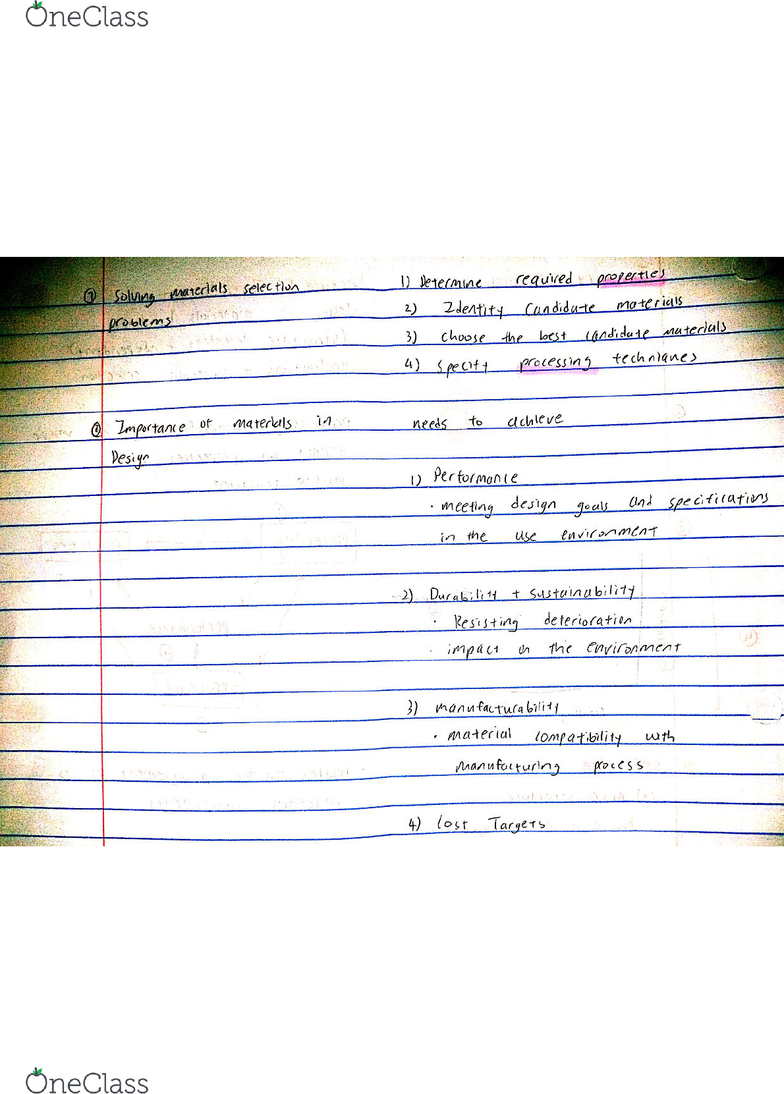 OneClass
① Solving materials selection
problems
1) Determine required properties
2) Identify candidate materials
3) choose the best candidate materials
4) specify processing techniques
① Importance of materials in
Design
needs to achieve
1) Performance
· meeting design goals and specifications
in the use environment
2) Durability + sustainability
· Resisting deterioration
· impact on the environment
3) manufacturability
· material compatibility with
manufacturing process
4) Cost Targets
OneClass